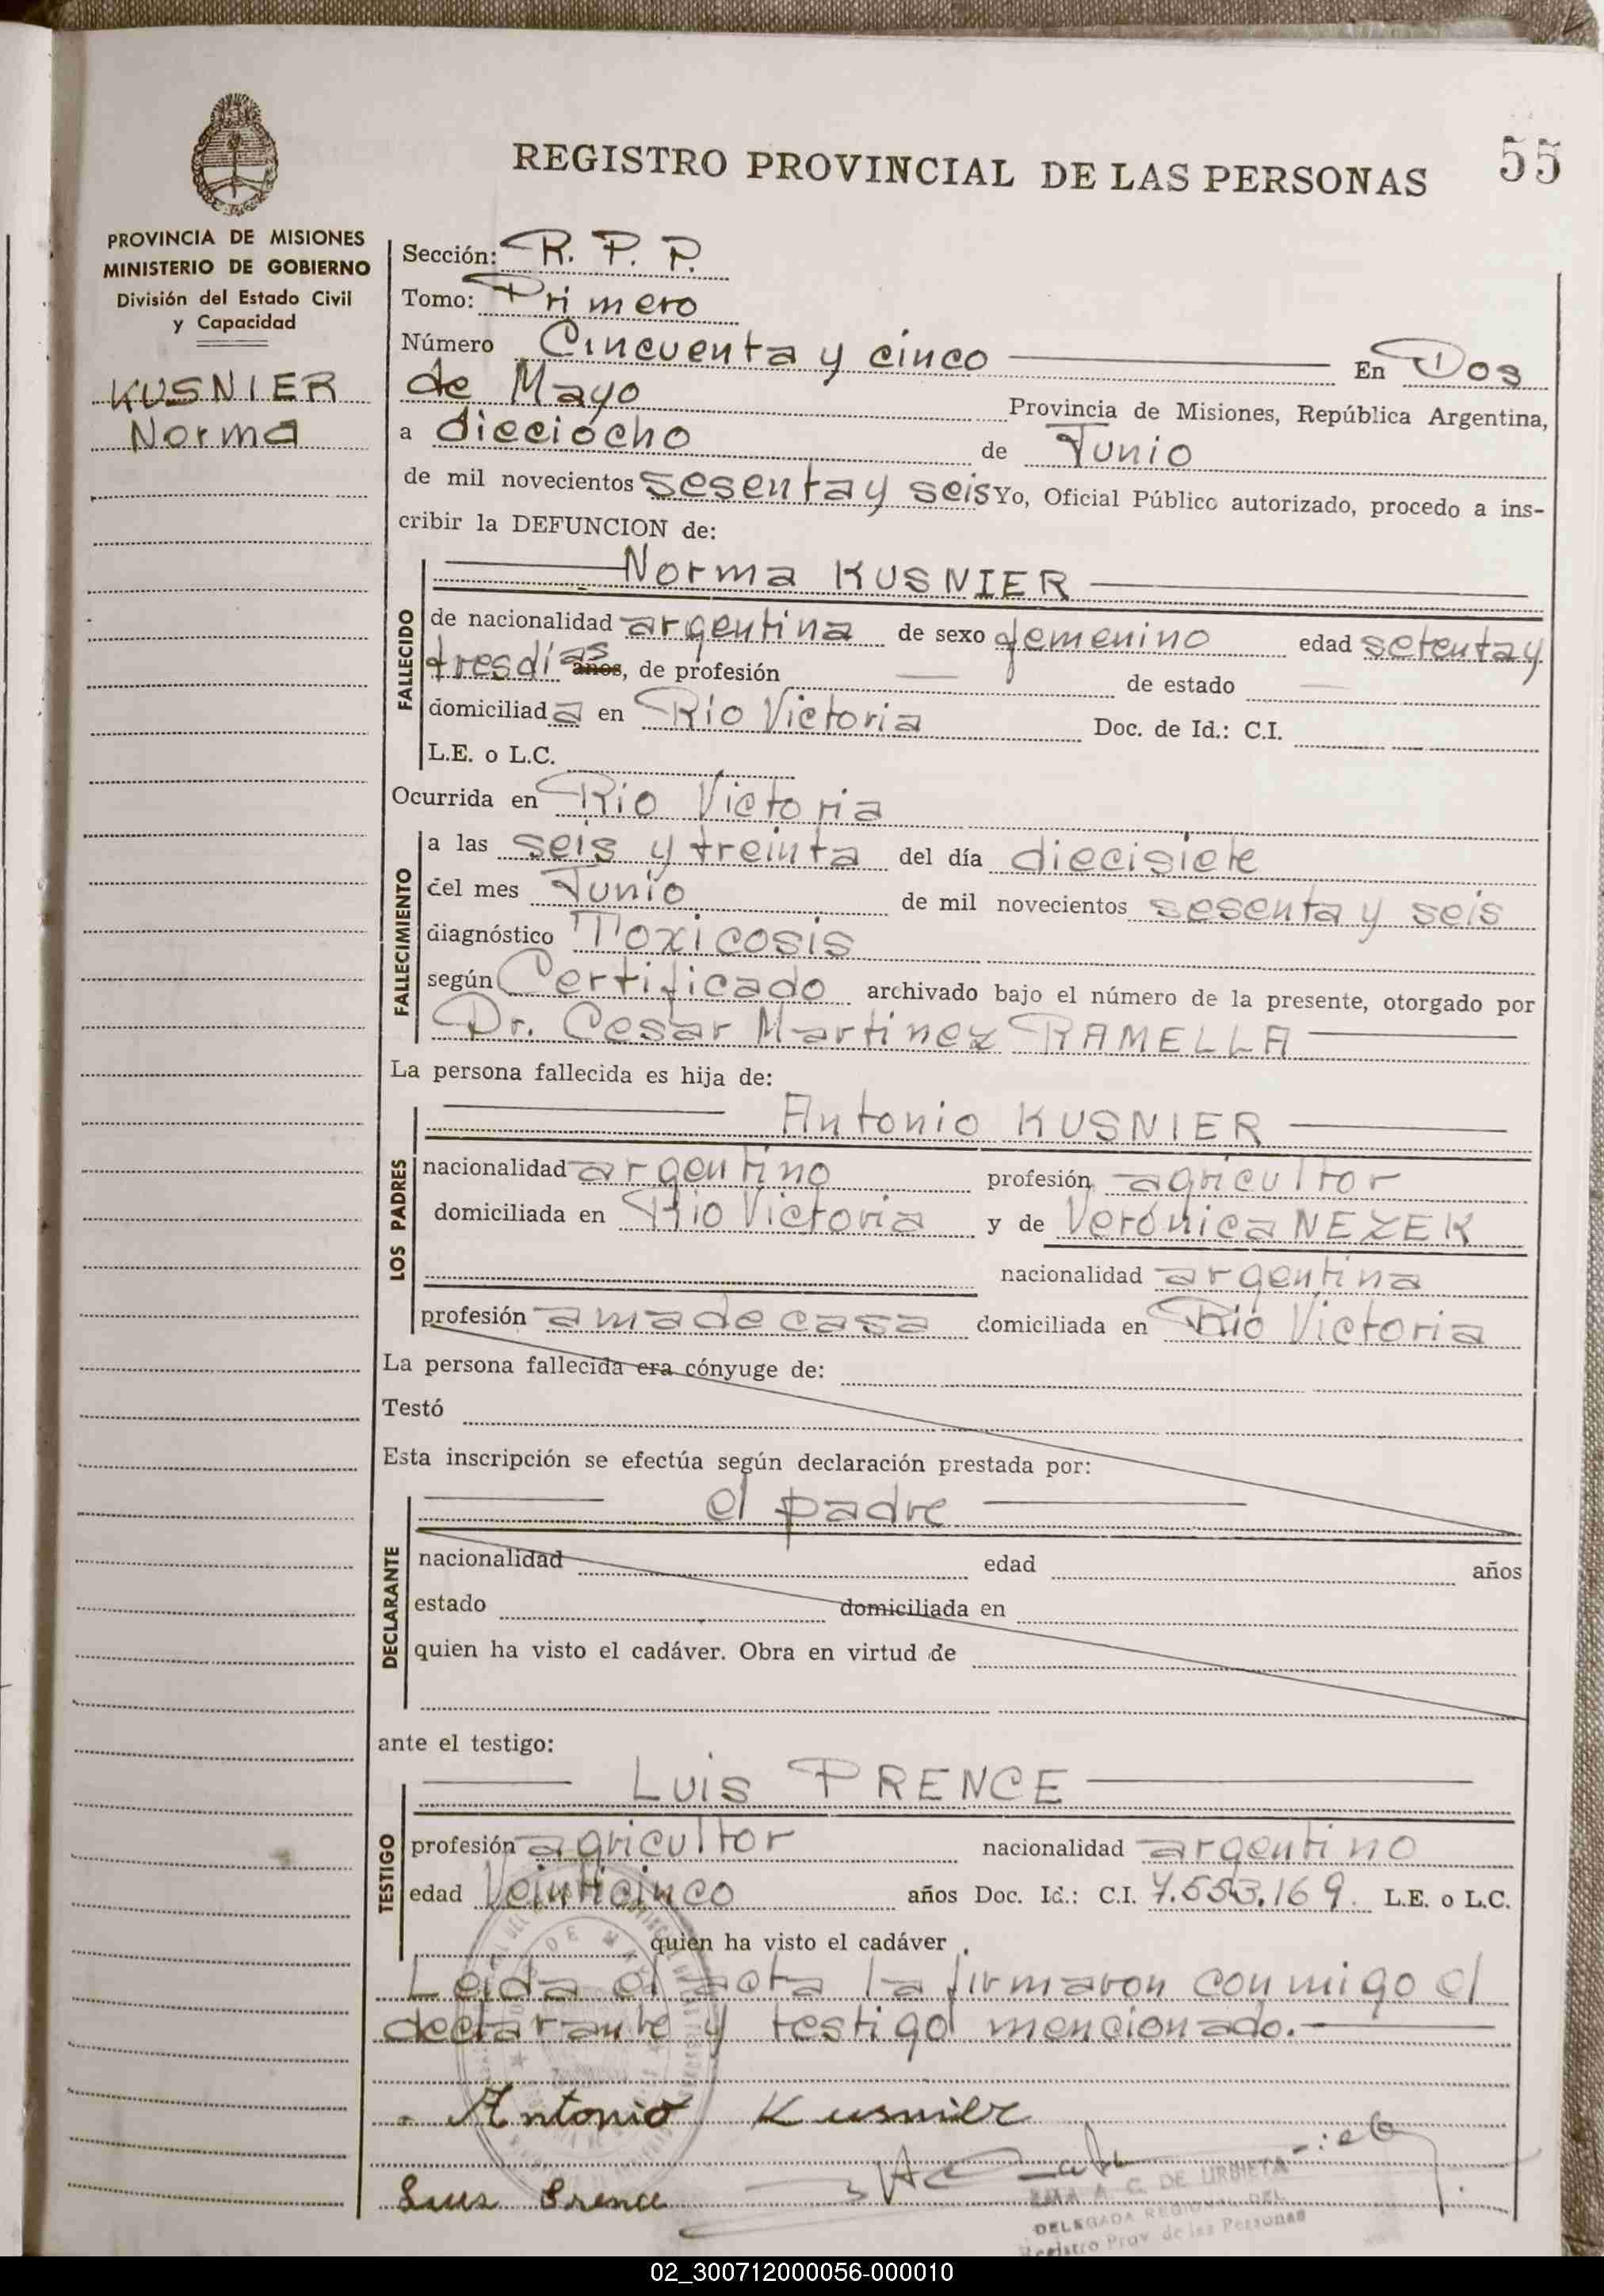 REGISTRO PROVINCIAL DE LAS PERSONAS
55
PROVINCIA DE MISIONES
MINISTERIO DE GOBIERNO
División del Estado Civil
y Capacidad
KUSNIER
Norma
Sección: R. P. P.
Tomo: Primero
Número Cincuenta y cinco En Dos
de Mayo Provincia de Misiones, República Argentina,
a dieciocho de Junio
de mil novecientos sesenta y seis Yo, Oficial Público autorizado, procedo a ins-
cribir la DEFUNCION de:
Norma KUSNIER
FALLECIDO
de nacionalidad argentina de sexo femenino edad setenta y
tres días años, de profesión — de estado —
domiciliada en Río Victoria Doc. de Id.: C.I.
L.E. o L.C.
Ocurrida en Río Victoria
FALLECIMIENTO
a las seis y treinta del día diecisiete
del mes Junio de mil novecientos sesenta y seis
diagnóstico Toxicosis
según Certificado archivado bajo el número de la presente, otorgado por
Dr. Cesar Martinez RAMELLA
La persona fallecida es hija de:
LOS PADRES
Antonio KUSNIER
nacionalidad argentino profesión agricultor
domiciliada en Río Victoria y de Verónica NEZEK
nacionalidad argentina
profesión ama de casa domiciliada en Río Victoria
La persona fallecida era cónyuge de:
Testó
Esta inscripción se efectúa según declaración prestada por:
DECLARANTE
el padre
nacionalidad edad años
estado domiciliada en
quien ha visto el cadáver. Obra en virtud de
ante el testigo:
TESTIGO
Luis PRENCE
profesión agricultor nacionalidad argentino
edad Veinticinco años Doc. Id.: C.I. 7.553.169. L.E. o L.C.
quien ha visto el cadáver.
Leída el acta la firmaron conmigo el
declarante y testigo mencionado.
Antonio Kusnier
Luis Prence
A. C. DE URBIETA
DELEGADA REGIONAL DEL
Registro Prov. de las Personas
02_300712000056-000010